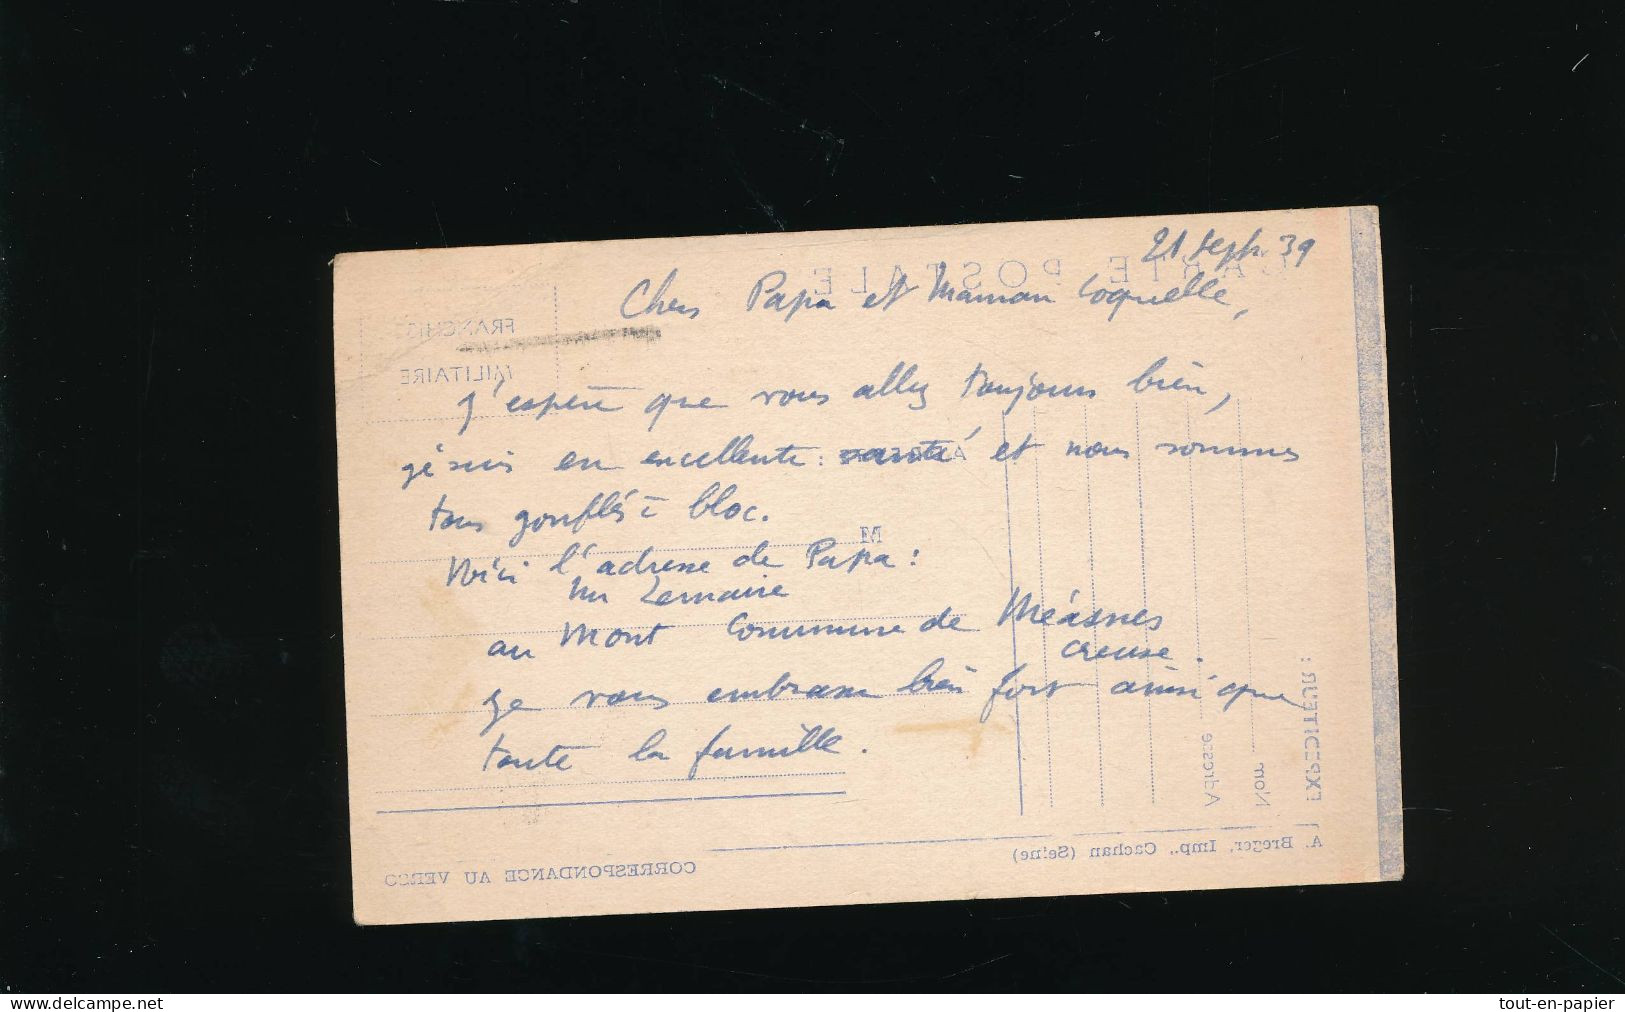 21 Sept. 39
CARTE POSTALE
Chers Papa et Maman Coquelle,
FRANCHISE
MILITAIRE
J'espère que vous allez toujours bien,
je suis en excellente santé et nous sommes
tous gonflés à bloc.
M
Voici l'adresse de Papa :
Mr Lemaire
au Mont Commune de Méasnes
Creuse.
Je vous embrasse bien fort ainsi que
toute la famille.
EXPEDITEUR :
Nom
Adresse
A. Breger, Imp., Cachan (Seine)
CORRESPONDANCE AU VERSO
www.delcampe.net
tout-en-papier